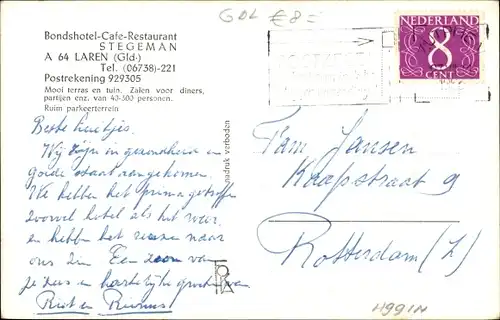 GDL €8=
Bondshotel-Cafe-Restaurant
STEGEMAN
A 64 LAREN (Gld.)
Tel. (06738)-221
Postrekening 929305
Mooi terras en tuin. Zalen voor diners,
partijen enz. van 40-300 personen.
Ruim parkeerterrein
NEDERLAND
8
CENT
nadruk verboden
Beste luitjes.
Wij zijn in gezondheid en
goede staat aangekomen.
We hebben het prima getroffen
zowel hotel als het weer,
en hebben het naar
ons zin Een zoen van
en hartelijke groeten van
Riet en
Fam Jansen
Kaapstraat 9
Rotterdam (Z)
H991N